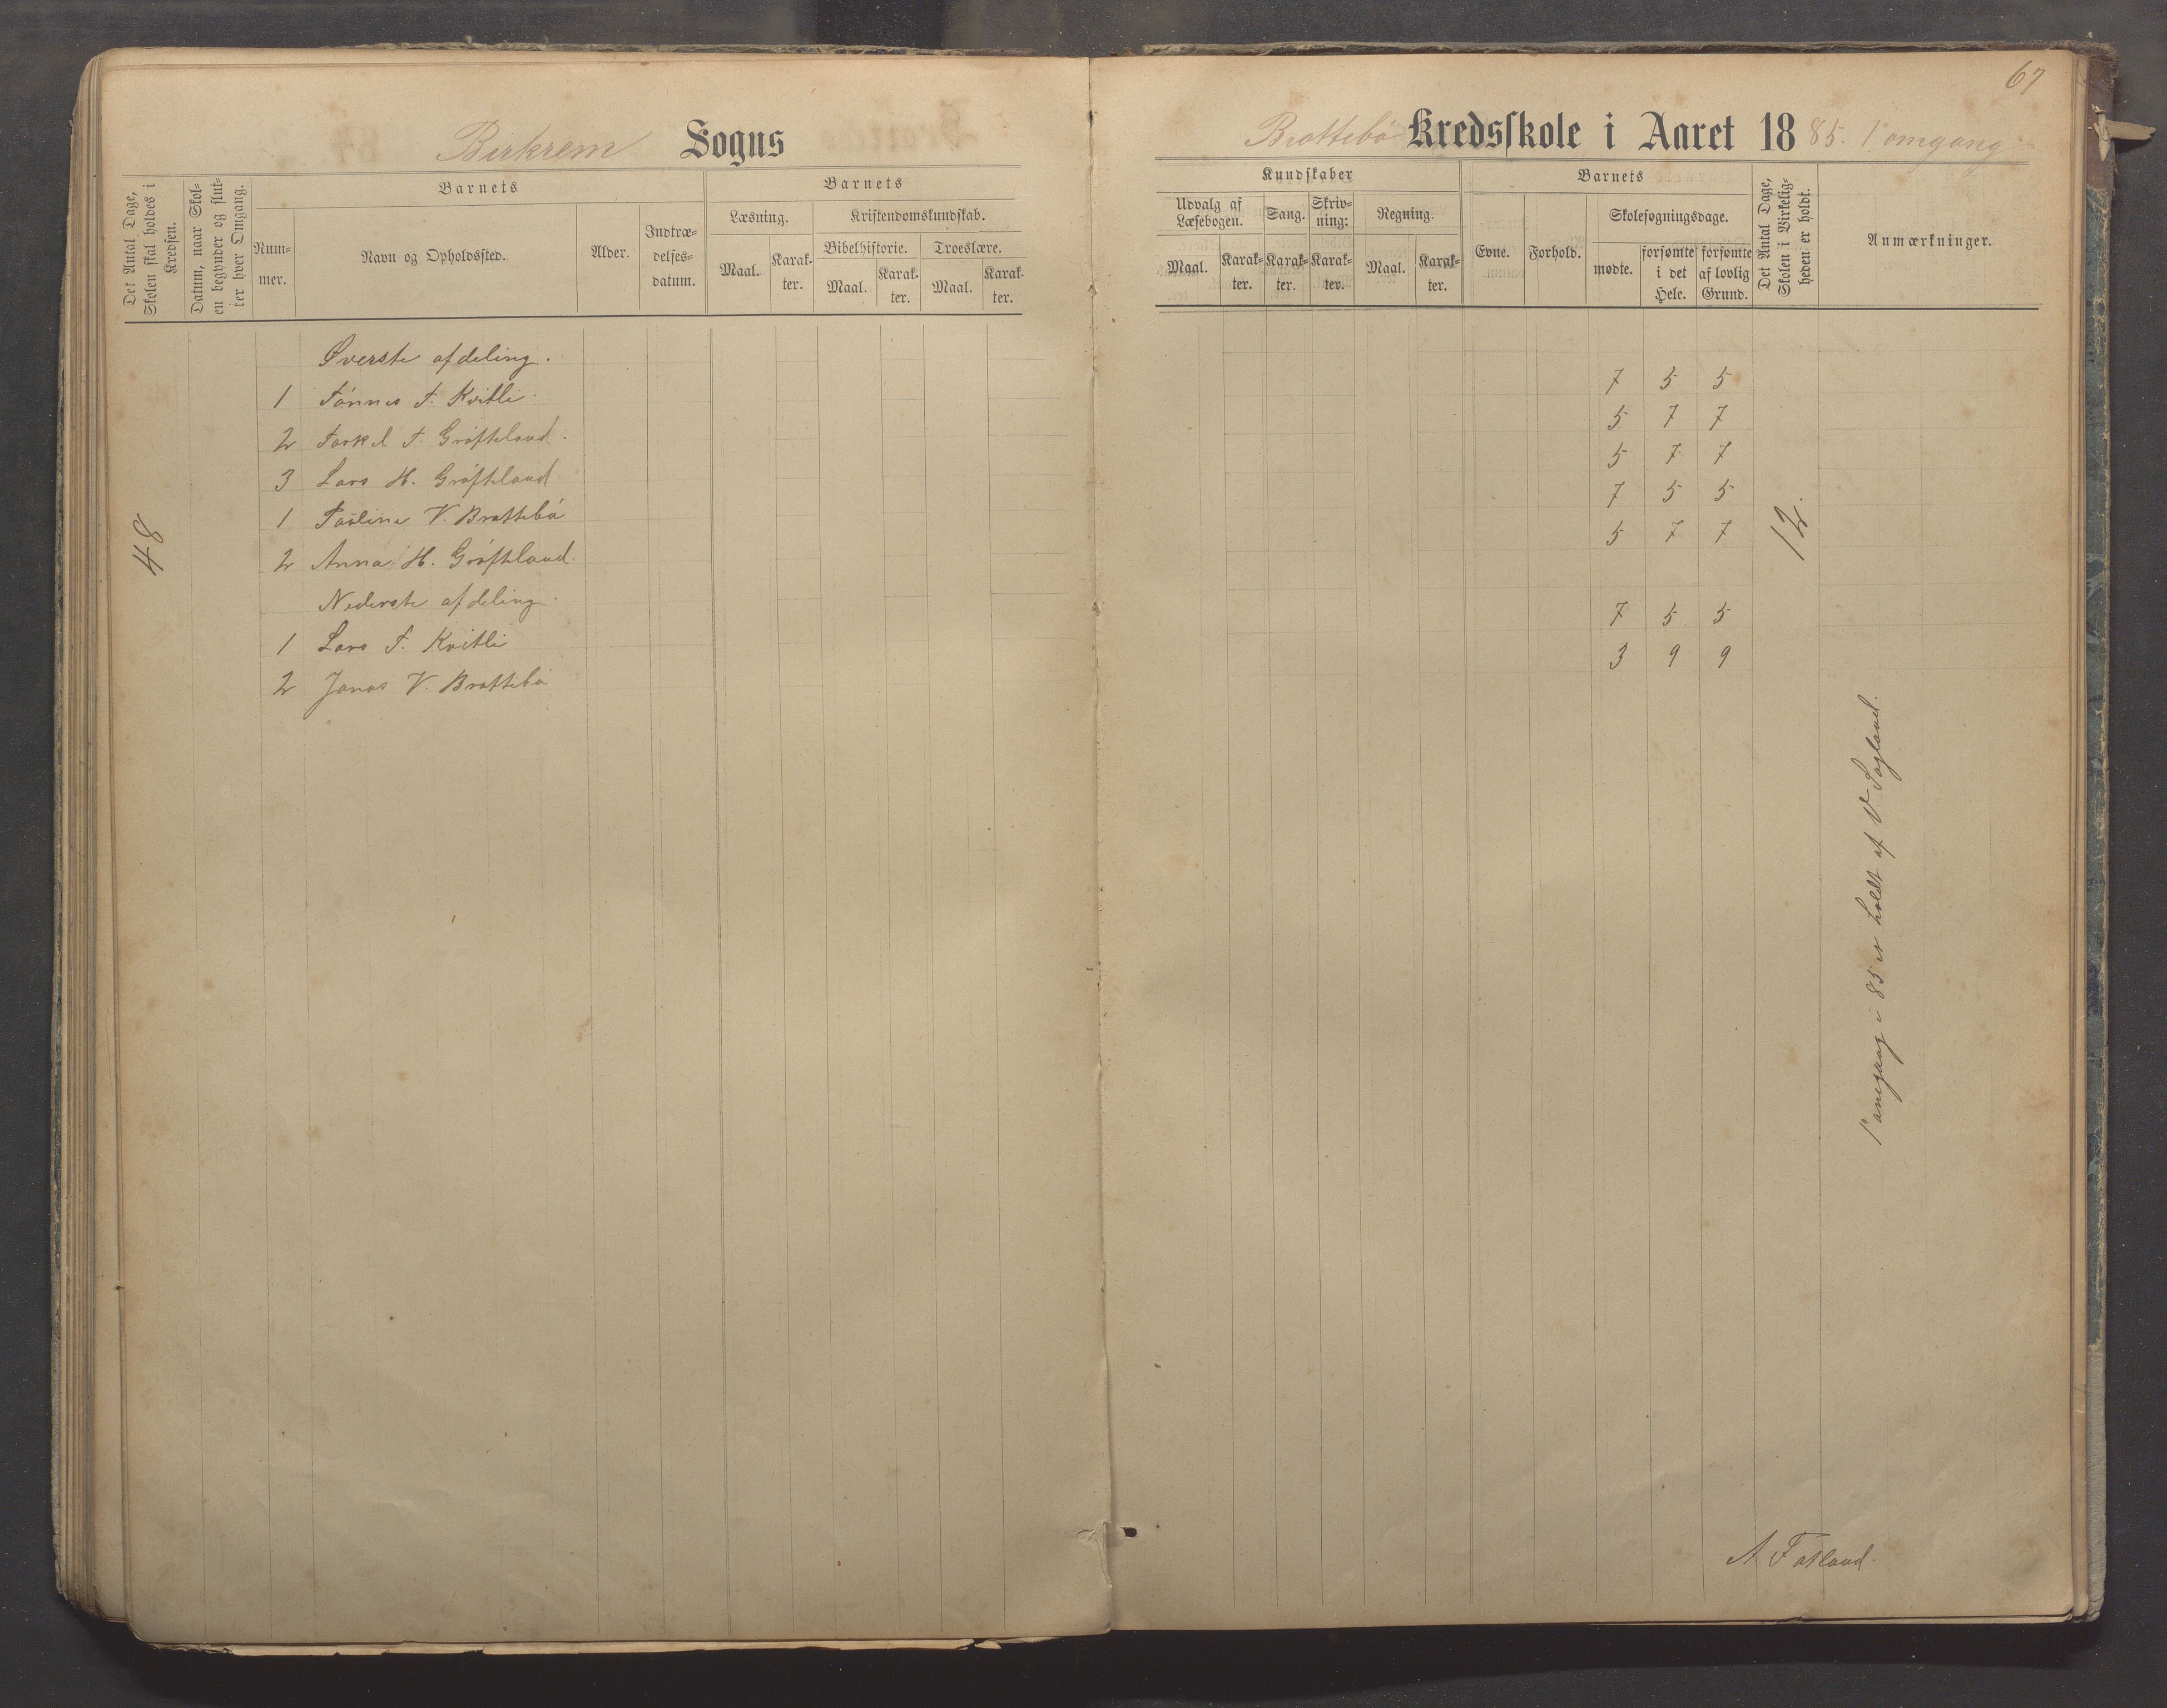 67
Birkrem Sogns
Brattebö Kredsskole i Aaret 1885. 1ᵉ omgang
Det Antal Dage, Skolen skal holdes i Kredsen.
Datum, naar Skolen begynder og slutter hver Omgang.
Barnets
Nummer.
Navn og Opholdssted.
Alder.
Indtrædelsesdatum.
Barnets
Læsning.
Maal.
Karakter.
Kristendomskundskab.
Bibelhistorie.
Maal.
Karakter.
Troeslære.
Maal.
Karakter.
Kundskaber
Udvalg af Læsebogen.
Maal.
Karakter.
Sang.
Karakter.
Skrivning:
Karakter.
Regning.
Maal.
Karakter.
Barnets
Evne.
Forhold.
Skolesøgningsdage.
mødte.
forsømte i det Hele.
forsømte af lovlig Grund.
Det Antal Dage, Skolen i Virkeligheden er holdt.
Anmærkninger.
48
Øverste afdeling.
1 Tönnes T. Kvitli 7 5 5
2 Torkel T. Gröfteland 5 7 7
3 Lars H. Gröfteland 5 7 7
1 Toline V. Brattebö 7 5 5
2 Anna H. Gröfteland 5 7 7
Nederste afdeling
1 Lars T. Kvitli 7 5 5
2 Jonas V. Brattebö 3 9 9
12.
1ᵉ omgang i 85 er holdt af V. Sagland.
A Fotland